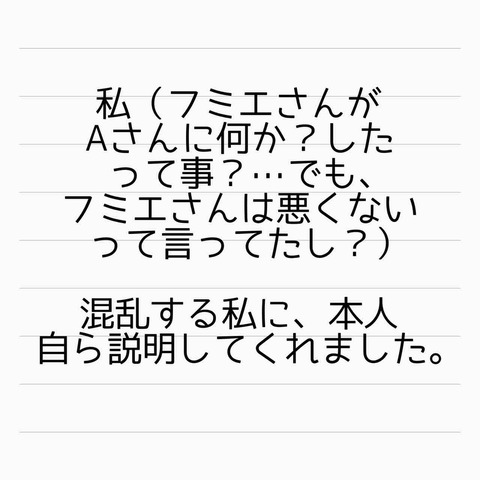 私（フミエさんが
Aさんに何か？した
って事？…でも、
フミエさんは悪くない
って言ってたし？）
混乱する私に、本人
自ら説明してくれました。